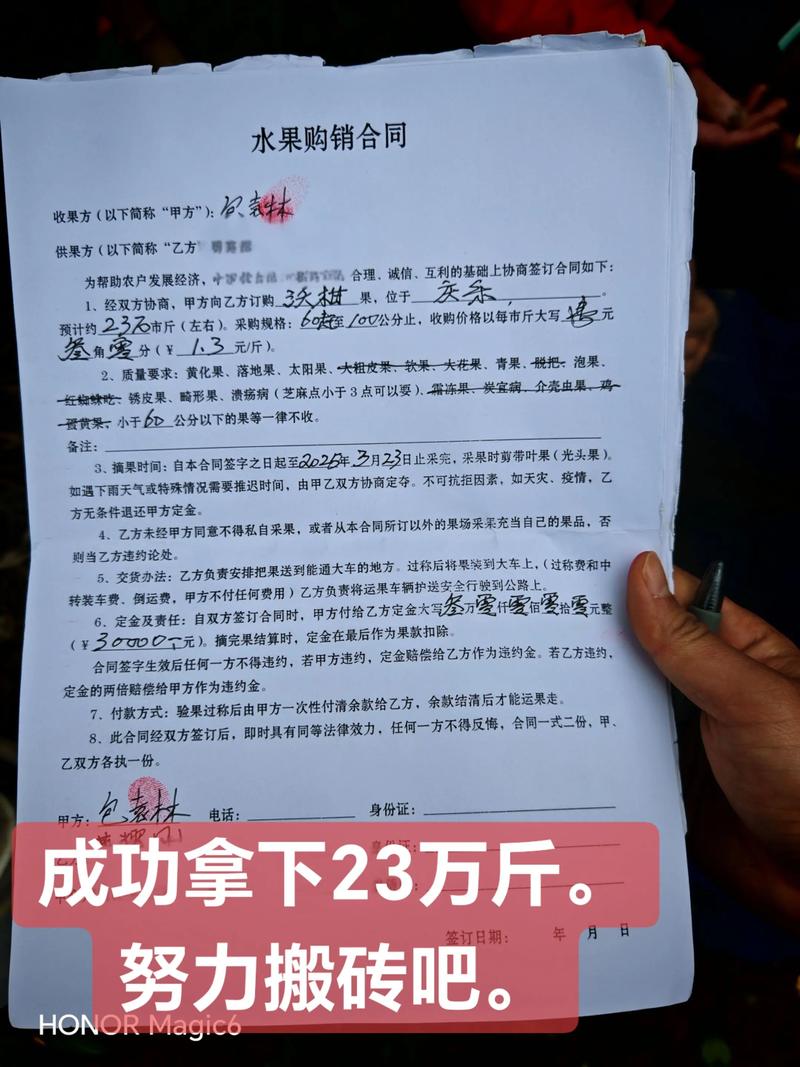 水果购销合同
收果方（以下简称“甲方”）：包袁林
供果方（以下简称“乙方
为帮助农户发展经济，合理、诚信、互利的基础上协商签订合同如下：
1、经双方协商，甲方向乙方订购 沃柑 果，位于。
预计约23万市斤（左右）。采购规格：60起至100公分止，收购价格以每市斤大写 壹 元
叁角零分（￥ 1.3 元/斤）。
2、质量要求：黄化果、落地果、太阳果、大粗皮果、软果、大花果、青果、脱把、泡果、
红蜘蛛吃、锈皮果、畸形果、溃疡病（芝麻点小于3点可以要）、霜冻果、炭宜病、介壳虫果、鸡
蛋黄果、小于60公分以下的果等一律不收。
备注：
3、摘果时间：自本合同签字之日起至2025年3月23日止采完，采果时剪带叶果（光头果）。
如遇下雨天气或特殊情况需要推迟时间，由甲乙双方协商定夺。不可抗拒因素，如天灾、疫情，乙
方无条件退还甲方定金。
4、乙方未经甲方同意不得私自采果，或者从本合同所订以外的果场采来充当自己的果品，否
则当乙方违约论处。
5、交货办法：乙方负责安排把果送到能通大车的地方。过称后将果装到大车上，（过称费和中
转装车费、倒运费，甲方不付任何费用）乙方负责将运果车辆护送安全行驶到公路上。
6、定金及责任：自双方签订合同时，甲方付给乙方定金大写叁万零仟零佰零拾零元整
（￥30000元）。摘完果结算时，定金在最后作为果款扣除。
合同签字生效后任何一方不得违约，若甲方违约，定金赔偿给乙方作为违约金。若乙方违约，
定金的两倍赔偿给甲方作为违约金。
7、付款方式：验果过称后由甲方一次性付清余款给乙方，余款结清后才能运果走。
8、此合同经双方签订后，即时具有同等法律效力，任何一方不得反悔，合同一式二份，甲、
乙双方各执一份。
甲方：包袁林 电话： 身份证：
签订日期： 年 月 日
成功拿下23万斤。
努力搬砖吧。
HONOR Magic6